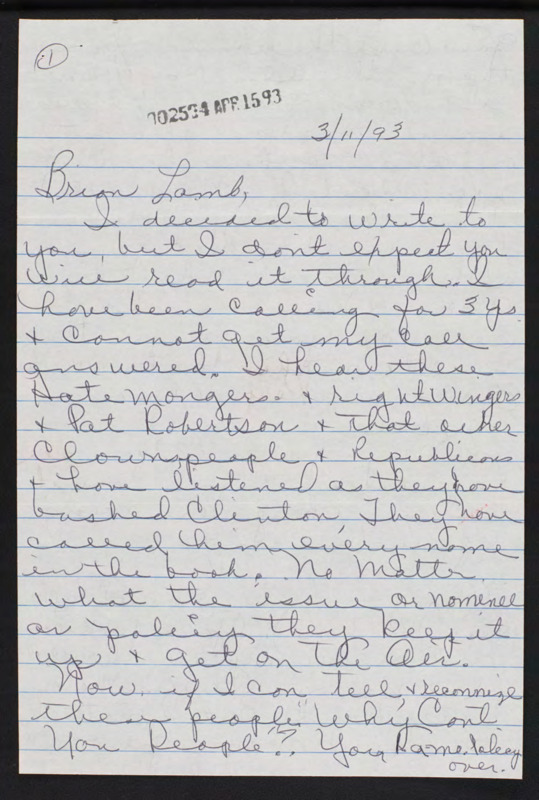 1
002534 APR 15 93
3/11/93
Brian Lamb,
I decided to write to
you, but I don't expect you
will read it through. I
have been calling for 3 ys.
& cannot get my call
answered. I hear these
Hate mongers. & rightwingers
& Pat Robertson & that other
Clowns, people & Republicans
& have listened as they have
bashed Clinton, They have
called him every name
in the book. No Matter
what the issue or nominee
or policy they keep it
up & get on the Air.
Now, if I can tell, & reconnize
these people "Why Cant
You People"? You
over.